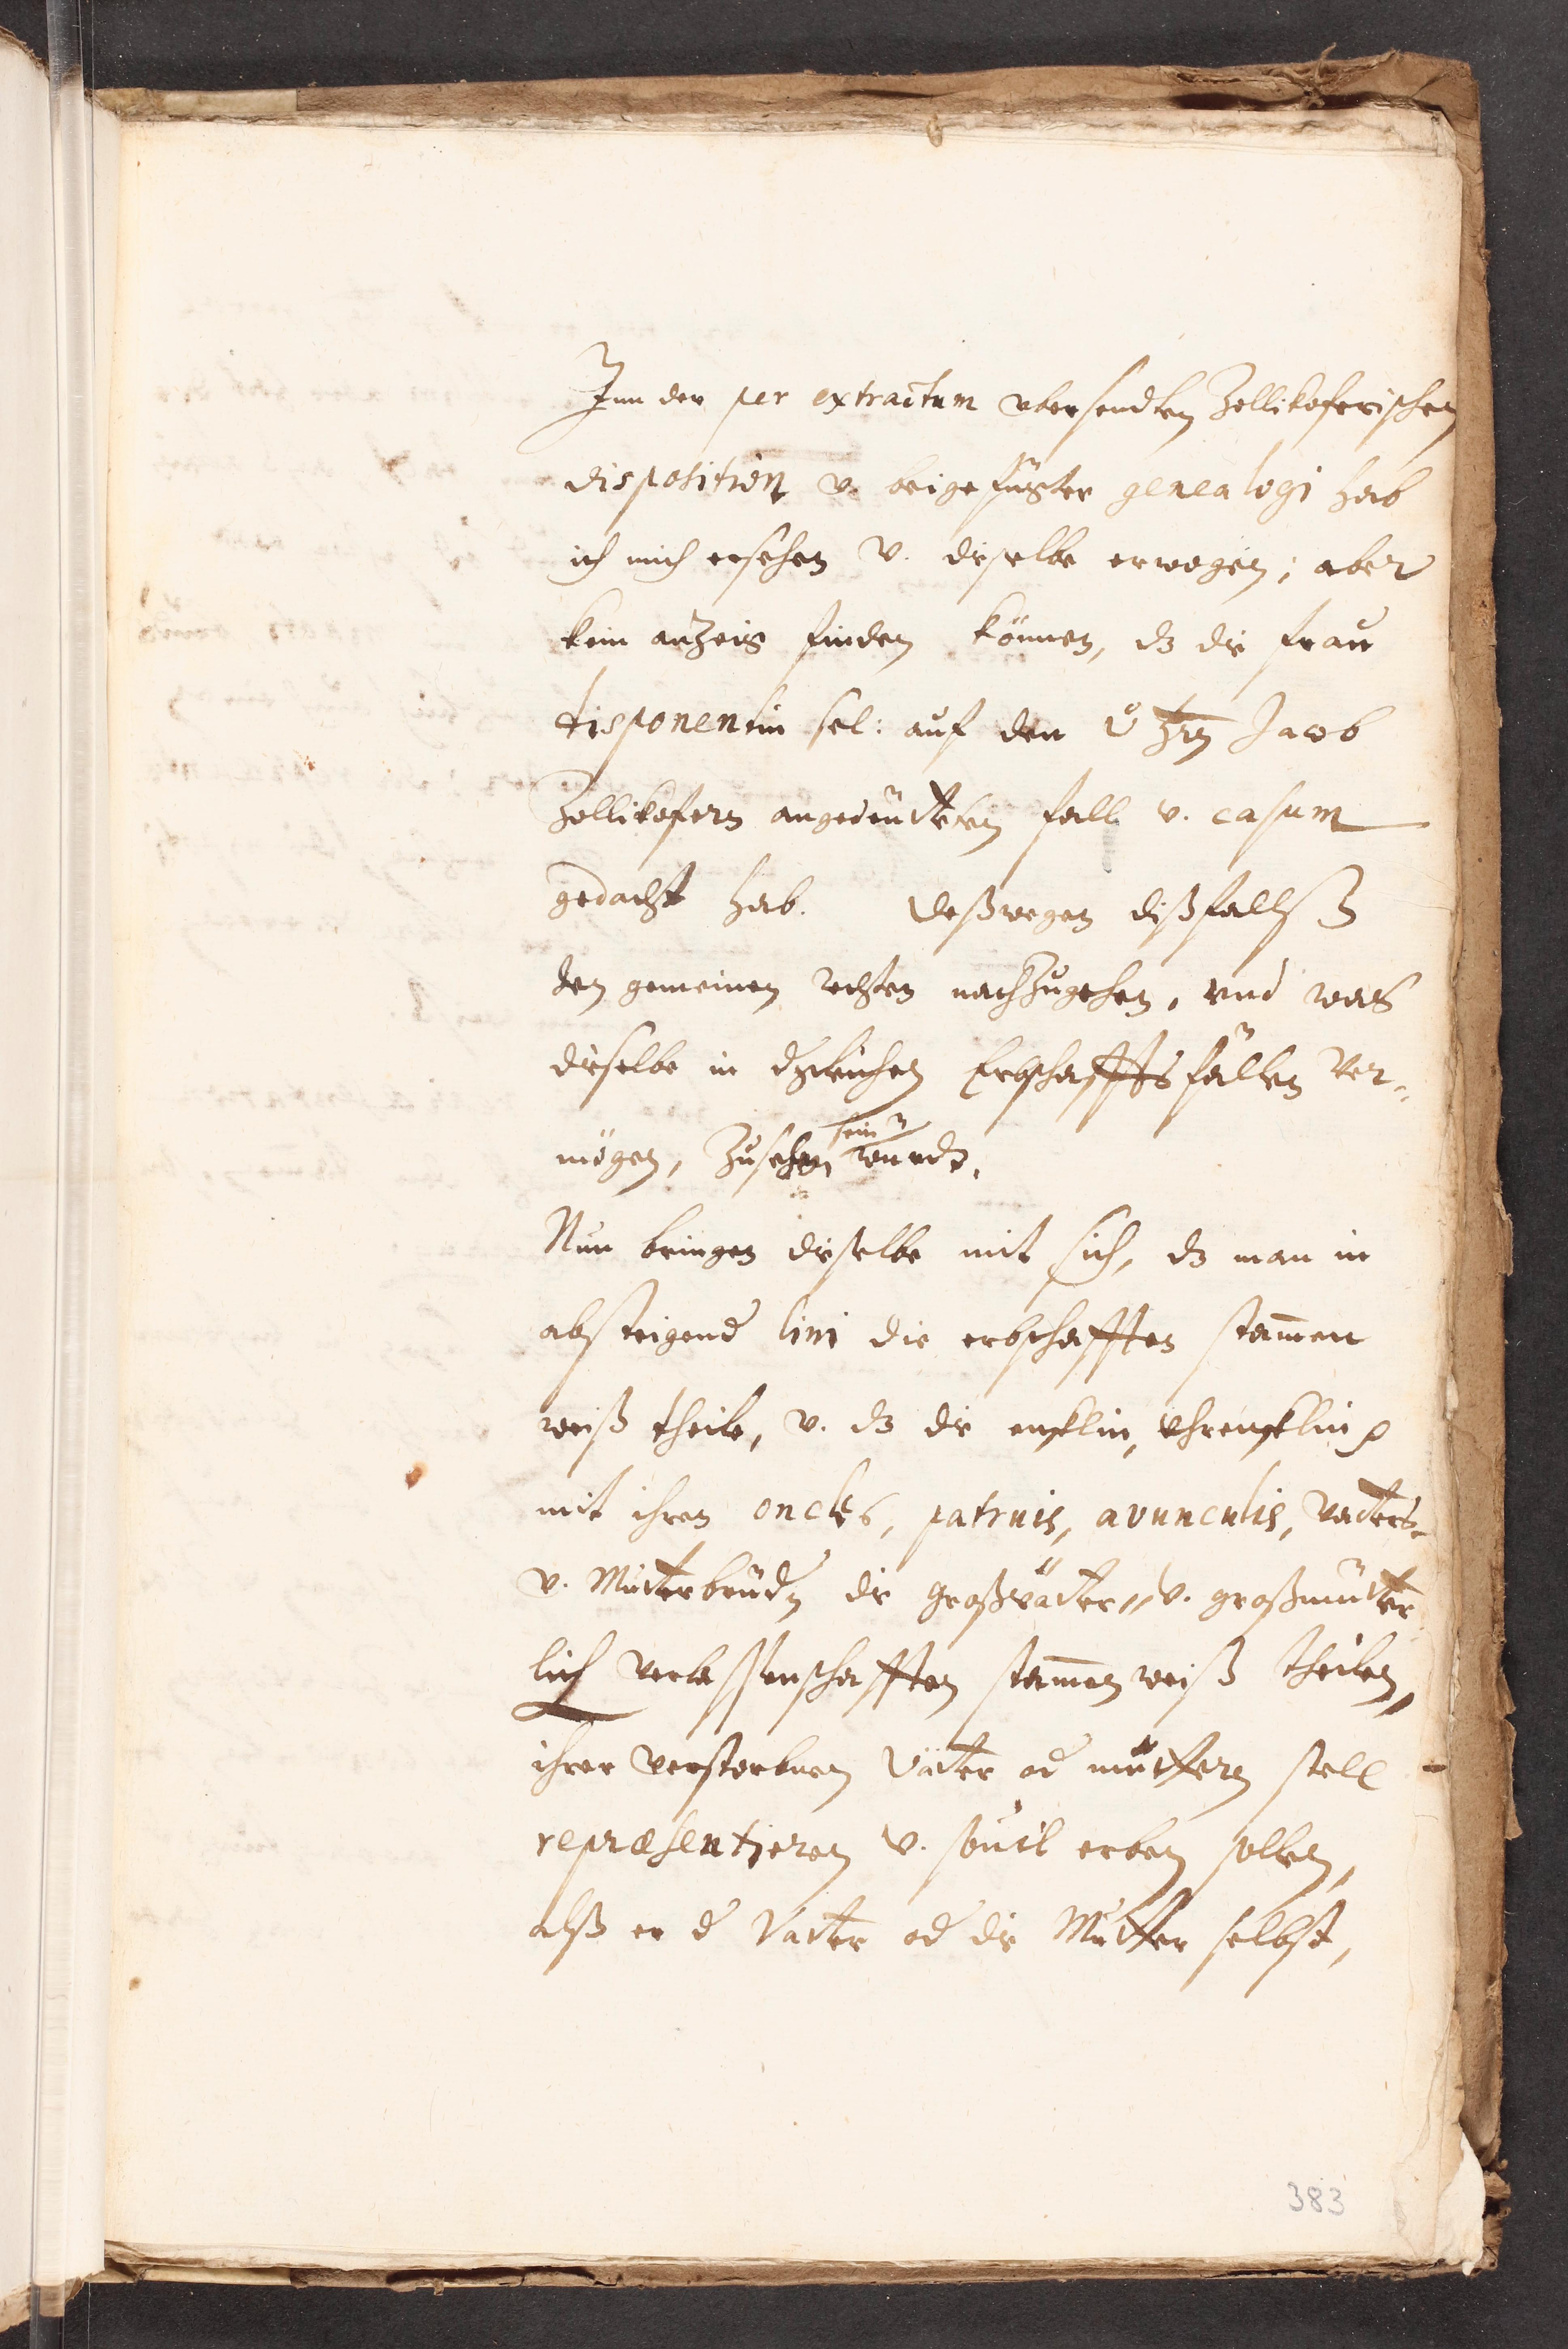 Inn der per extractum ubersendten Zollikoferischen
disposition v. beigefügter genealogi hab
ich mich ersehen v. dieselbe erwogen; aber
kein anzeig finden können, dz die frau
disponentin sel: auf den v Hrn Jacob
Zollikofern angedeutteten fall v. casum
gedacht hab. Deßwegen dißfallß
den gemeinen rechten nachzugehen, und was
dieselbe in dgleichen Erbschafftsfällen ver-
mögen, zusehen sein wurde.
Nun bringen dieselbe mit sich, dz man in
absteigend lini die erbschafften stammen
weiß theile, v. dz die enklin, uhrenklin
mit ihren oncles, patruis, avunculis, vatters-
v. Mutterbrüdn die großvätter- v. großmütter
lich verlassenschafften stammenweiß theilen,
ihrer verstorbnen Vätter od müttern stell
repræsentieren v. souil erben sollen,
alß er d Vatter od die Mutter selbst,
383